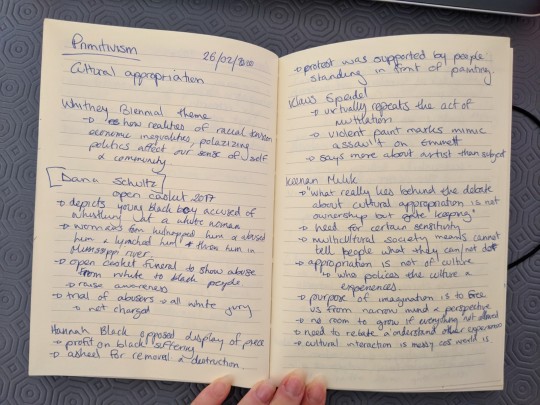 Primitivism
26/02/2020
Cultural appropriation
Whitney Biennial theme
→ show realities of racial tension
economic inequalities, polarizing
politics affect our sense of self
& community
[Dana Schultz]
open casket 2017
→ depicts young black boy accused of
whistling at a white woman
→ womans fam kidnapped him & abused
him & lynched him & threw him in
Mississippi river
→ open casket funeral to show abuse
from white to black people
→ raise awareness
→ trial of abusers → all white jury
→ not charged
Hannah Black opposed display of piece
→ profit on black suffering
→ asked for removal & destruction
→ protest was supported by people
standing in front of painting.
Klaus Speidel
→ virtually repeats the act of
mutilation
→ violent paint marks mimic
assault on Emmett
→ says more about artist than subject
Keenan Malik
→ "what really lies behind the debate
about cultural appropriation is not
ownership but gate keeping"
→ need for certain sensitivity
→ multicultural society means cannot
tell people what they can/not do
→ appropriation is not of culture
→ who polices the culture &
experiences
→ purpose of imagination is to free
us from narrow mind & perspective
→ no room to grow if everything not allowed
→ need to relate & understand other experiences
→ cultural interaction is messy cos world is.